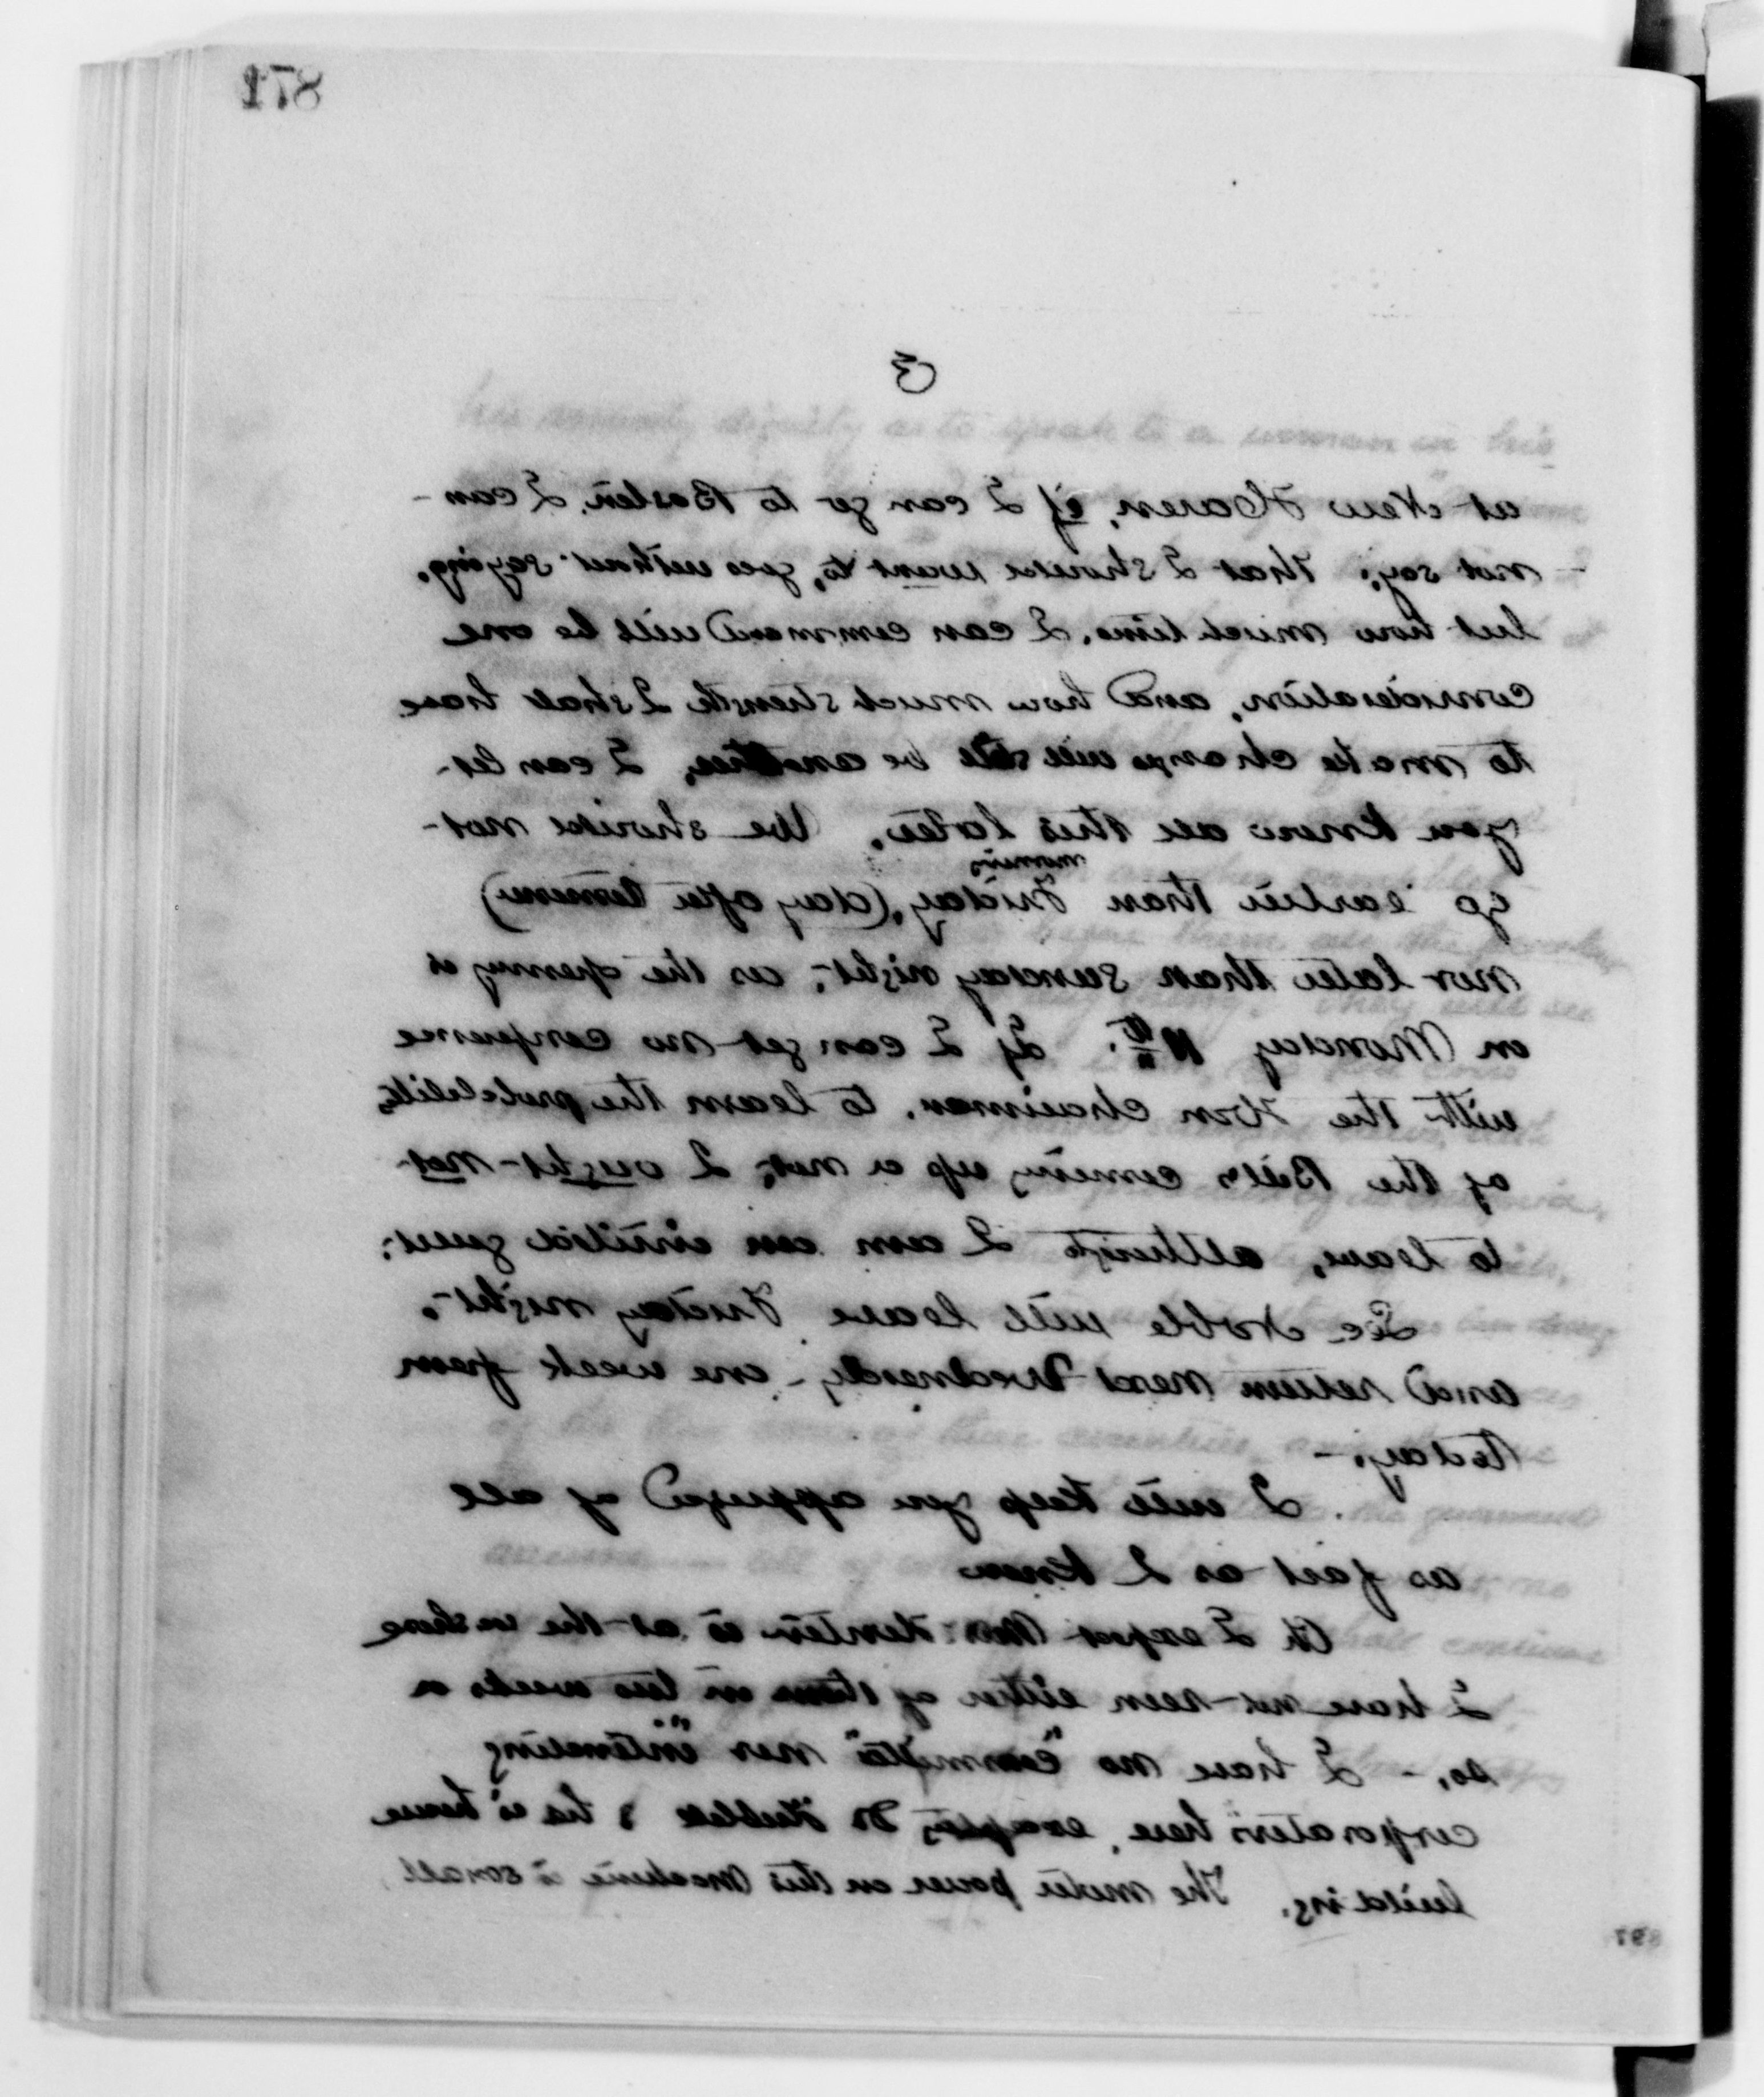 178
3
at New Haven, if I can go to Boston, I can-
not say; that I should want to, goes without saying.
but how much time, I can command will be one
consideration, and how much strength I shall have
to make change will be another, I can let
you know all this later. We should not
morning
go earlier than Friday, (day after tomorrow)
nor later than Sunday night; as the opening is
on Monday 11th. If I can get no conference
with the Hon Chairman, to learn the probability
of the Bill's coming up or not, I ought not
to leave, although I am an invited guest;
See Noble will leave Friday night,
and return next Wednesday, one week from
today. -
I will keep you apprized of all
as fast as I know
Oh I expect Mrs is at the
I have not seen either of them in two weeks or
so, - I have no "committee" nor "interesting
corporators" here, excepting Dr Hubbell & he is house
building. The motor power on this machine is small